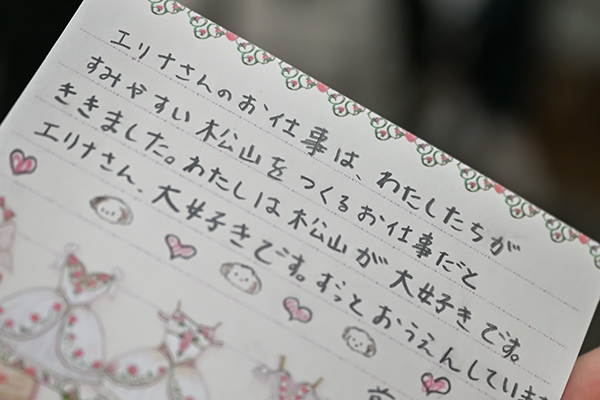 エリナさんのお仕事は、わたしたちが
すみやすい松山をつくるお仕事だと
ききました。わたしは松山が大好きです。
エリナさん、大好きです。ずっとおうえんしています